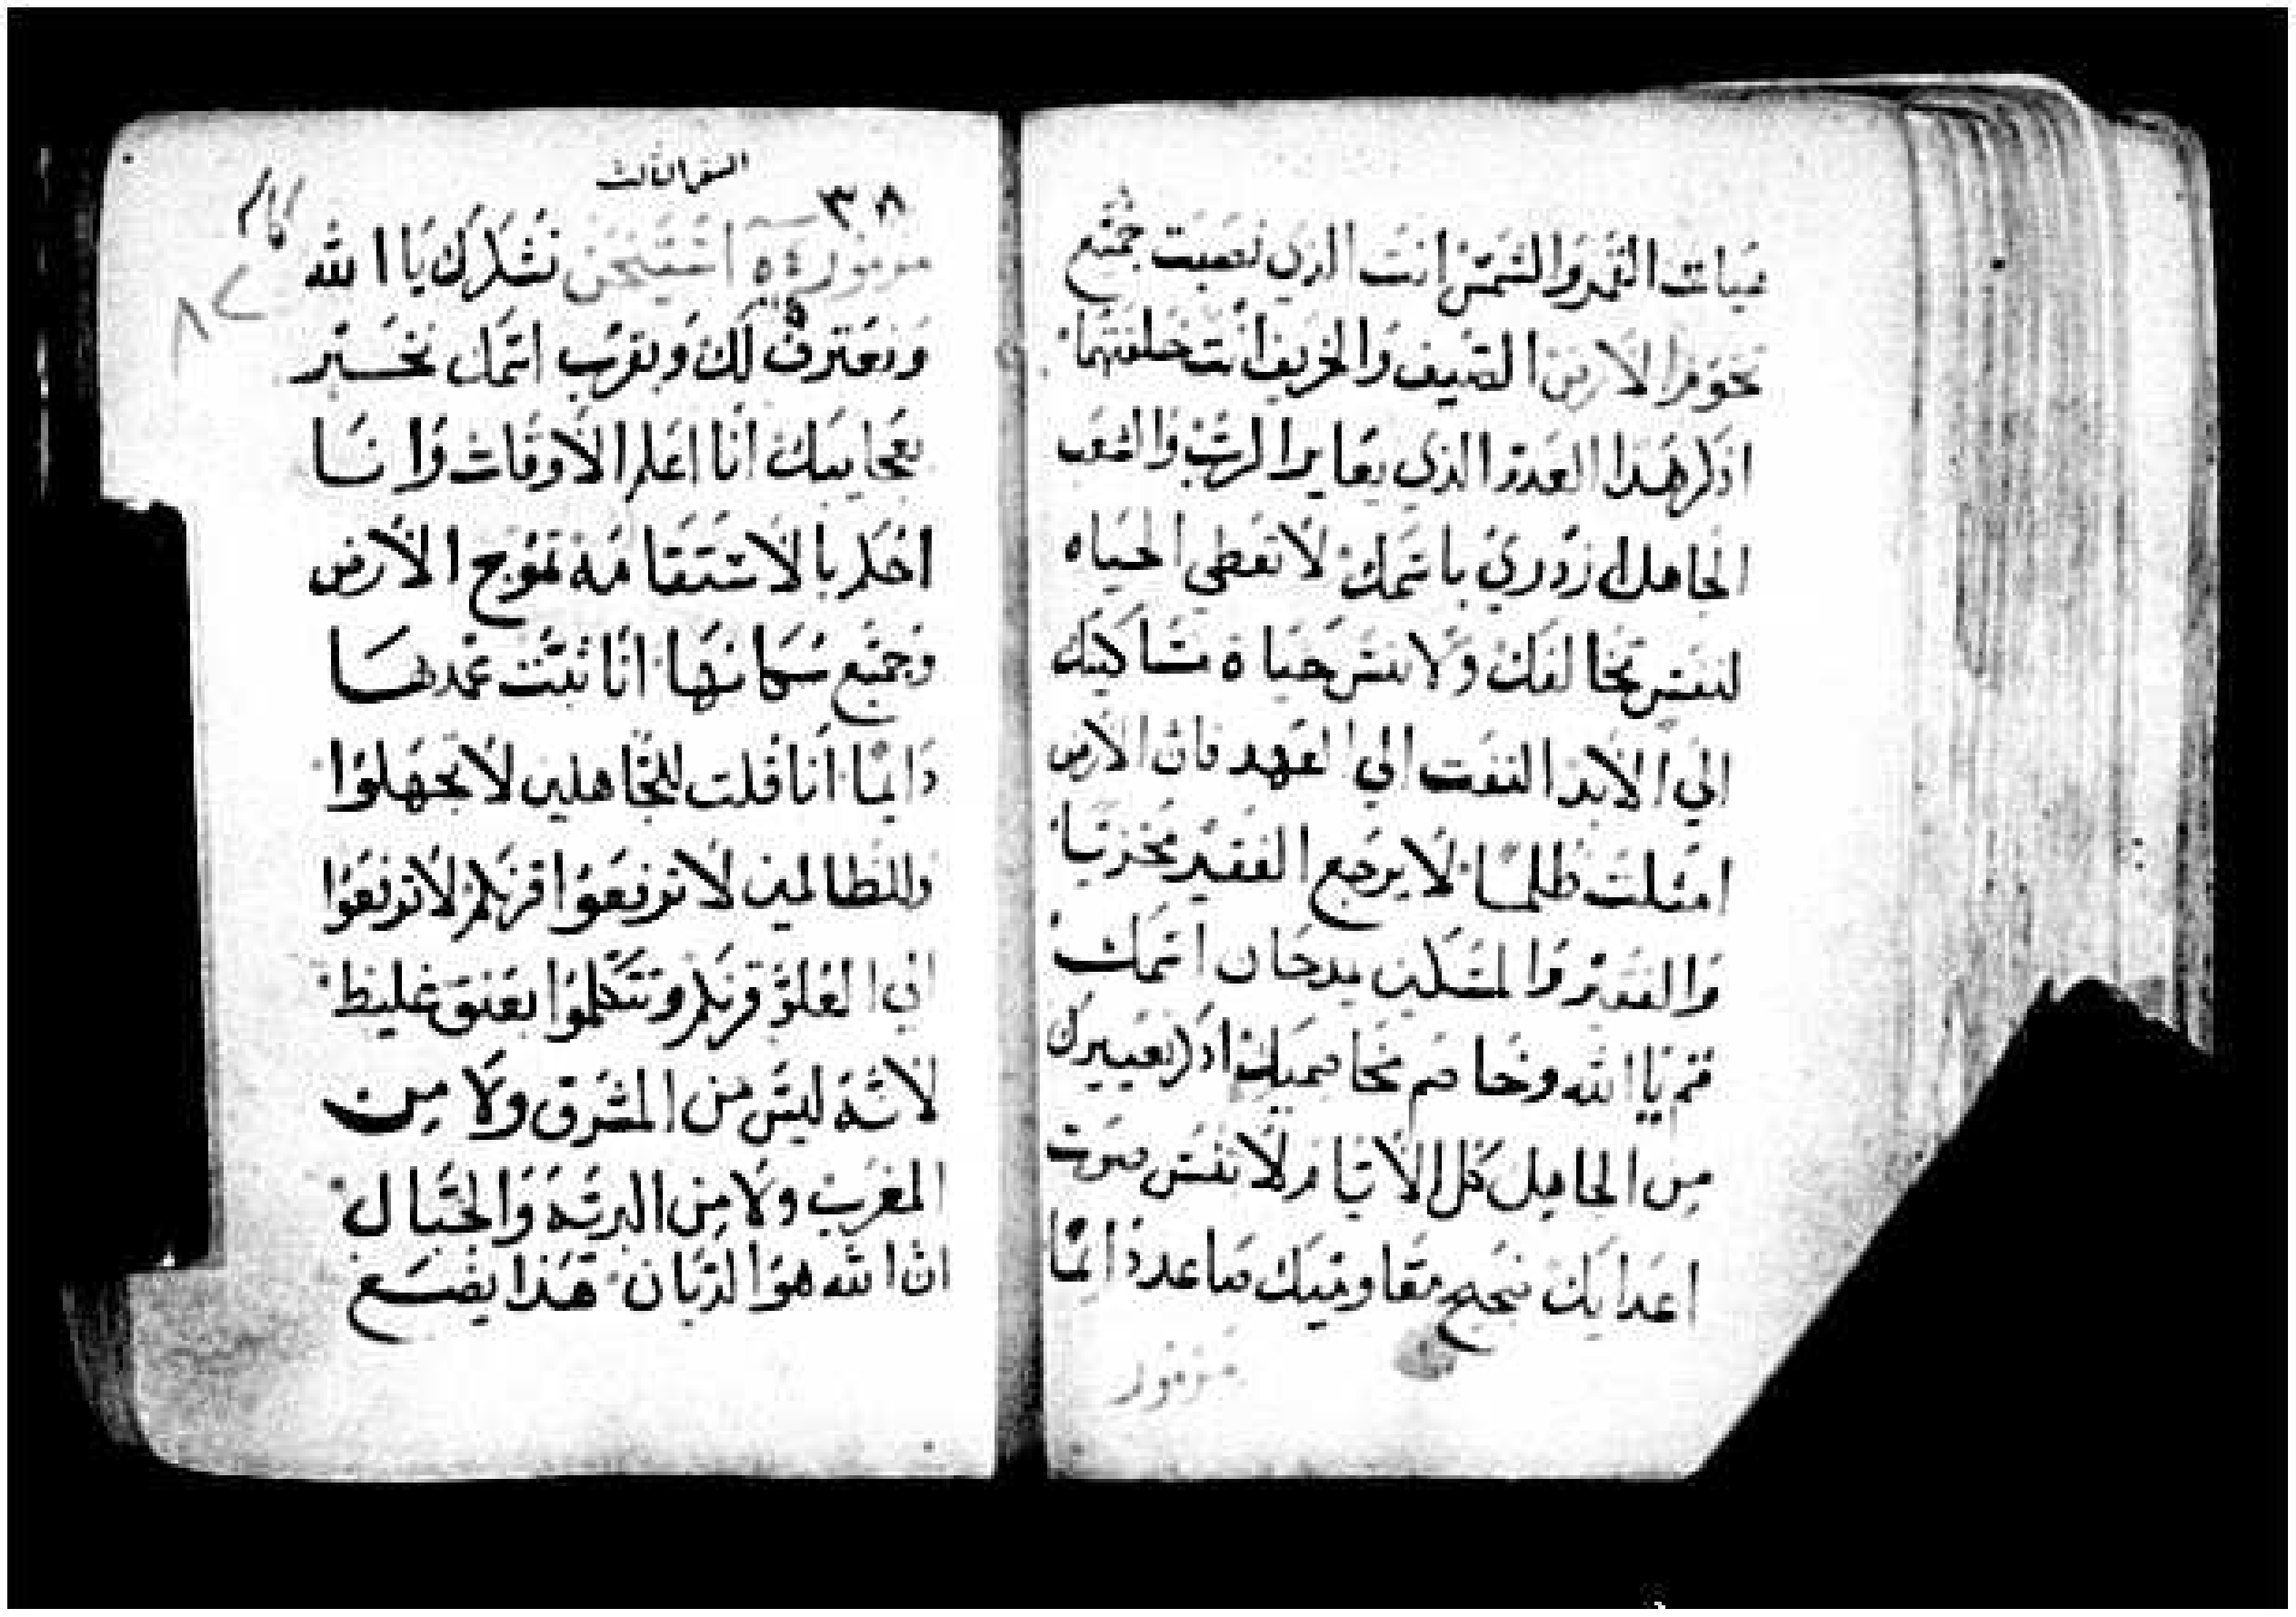 هيات القمر والشمس انت الذي نصبت جميع
تخوم الارض الصيف والخريف انت خلقتهما
اذكر هذا العدو الذي يعاير الرب والشعب
الجاهل ازدري باسمك لا تعطي الحياه
لنفس تخالفك ولا تنس حياة مساكينك
الي الابد التفت الي العهد فان الارض
امتلت ظلما لا يرجع الفقير مخزيا
والفقير والمسكين يمدحان اسمك
قم يا الله وخاصم مخاصميك اذكر تعييرك
من الجاهل كل الايام لا تنس صوت
اعدايك ضجيج مقاوميك صاعد دايما
مزمور
السفر الثالث
٣٨
مزمور استيخن نشكرك يا الله
ونعترف لك وبقرب اسمك نخبر
بعجايبك انا اعلم الاوقات وانا
احكم بالاستقامه تموج الارض
وجميع سكانها انا ثبتت عمدها
دايما انا قلت للجاهلين لا تجهلوا
وللظالمين لا ترفعوا قرنكم لا ترفعوا
الي العلو قرنكم وتتكلموا بعنق غليظ
لانه ليس من المشرق ولا من
المغرب ولا من البريه والجبال
ان الله هو الديان هذا يضع